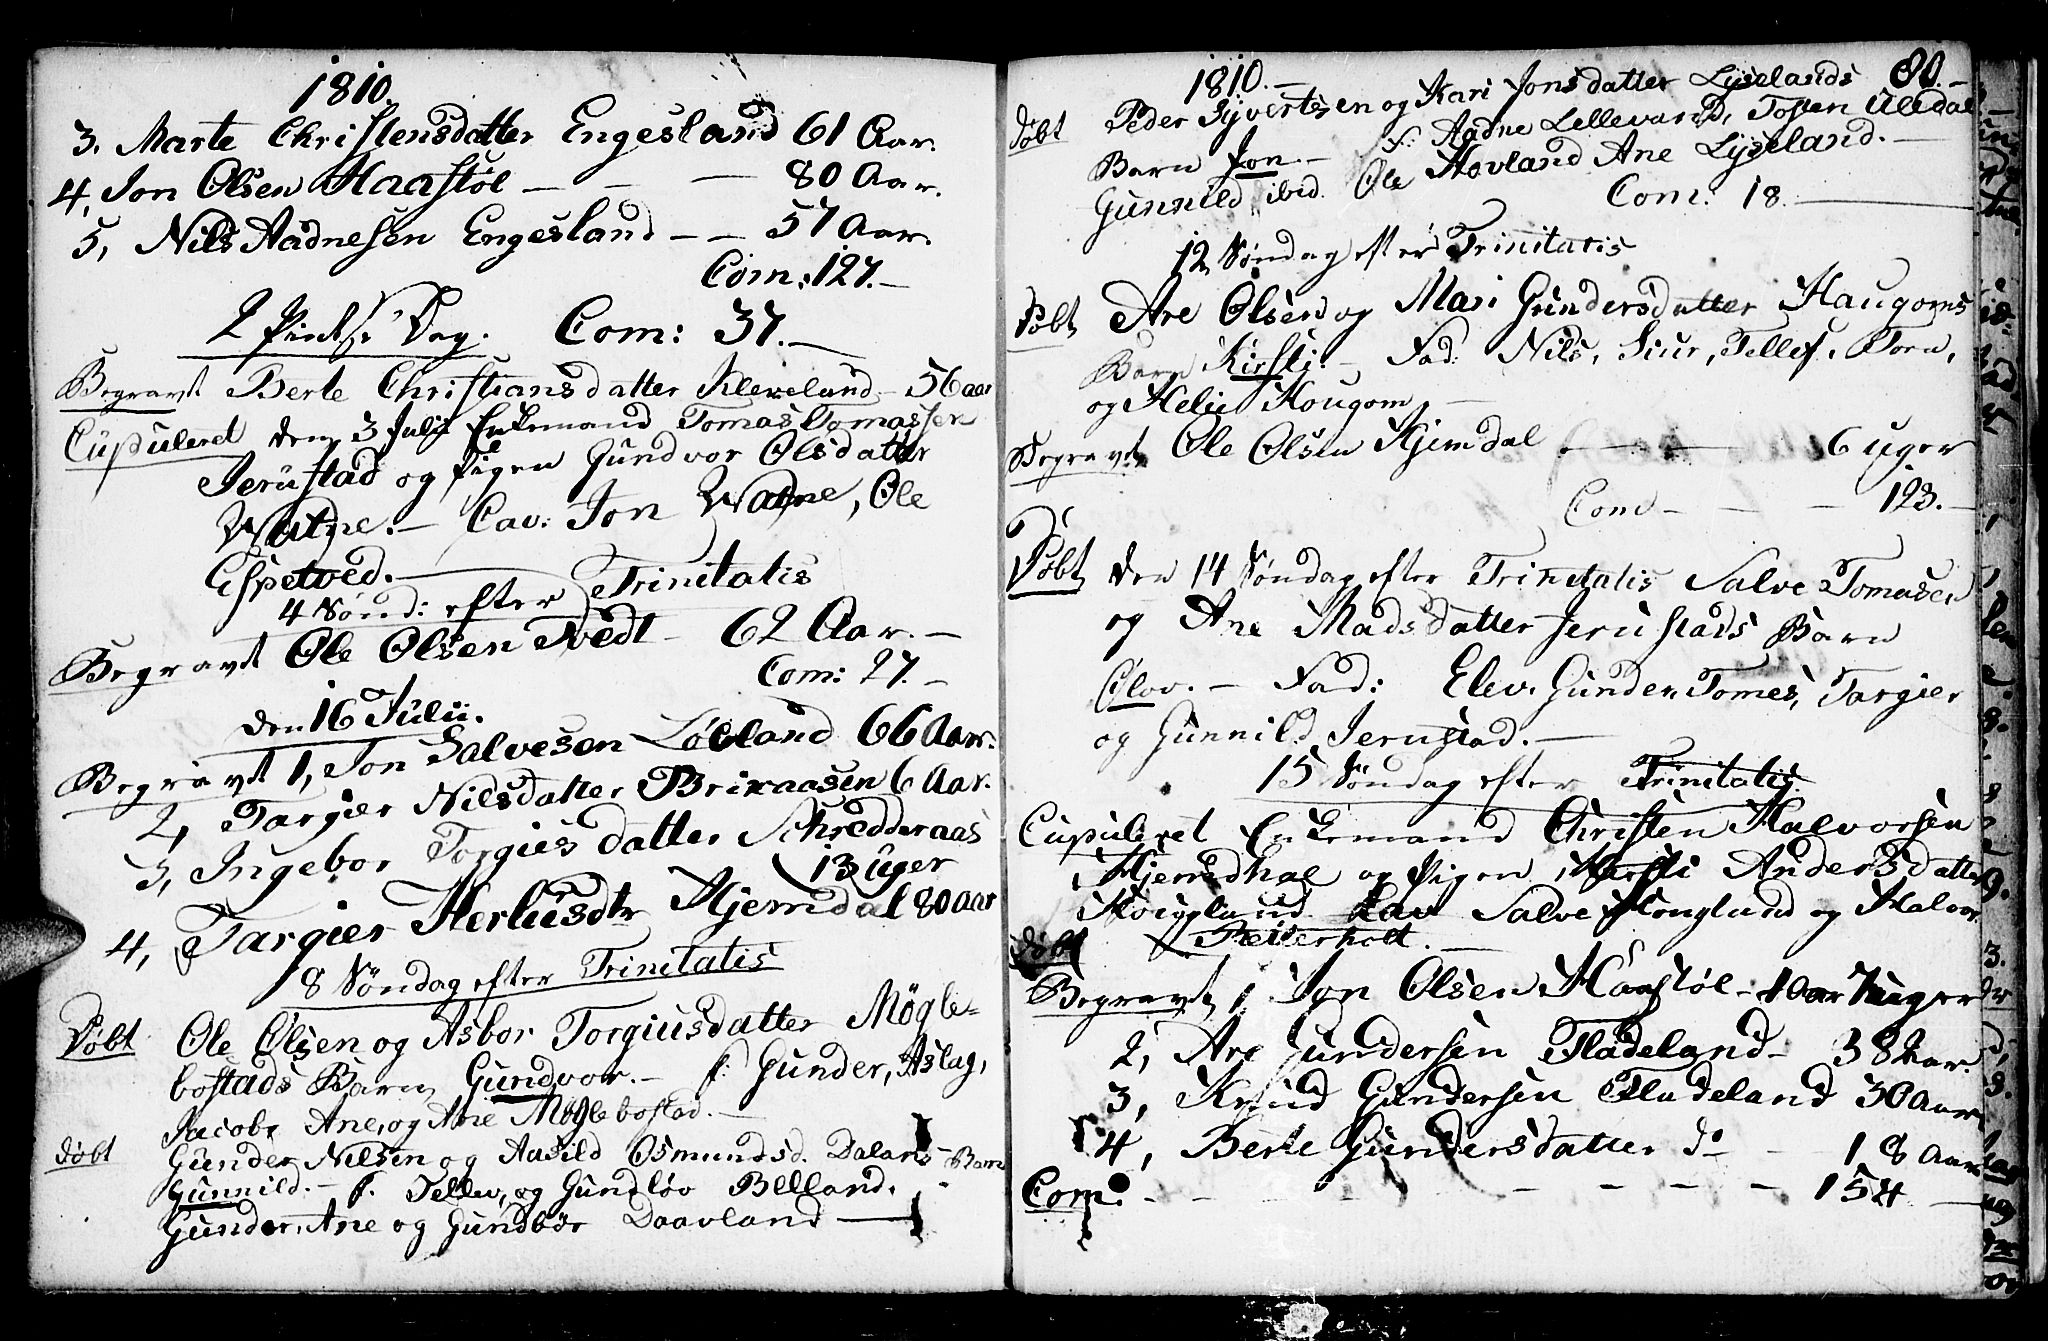 1810.
3. Marte Christensdatter Engesland 61 Aar.
4, Jon Olsen Haastøl — — — 80 Aar.
5, Nils Aadnesen Engesland — — 57 Aar.
Com: 127. —
2 Pintse Dag. Com: 37. —
Begravt Berte Christiansdatter Kleveland — 56 aar
Cupuleret den 3 Julii Enkemand Tomas Tomassen
Jerustad og Pigen Gundvor Olsdatter
Watne. — Cav: Jon Watne, Ole
Espetved. —
4 Sønd: efter Trinitatis
Begravt Ole Olsen Tvedt — 62 Aar. —
Com: 27. —
den 16 Julii.
Begravt 1, Jon Salvesen Løland 66 Aar.
2, Targier Nilsdatter Birkaasen 6 Aar.
3, Ingebor Torgiesdatter Schredderaas
13 uger
4, Targier Herleusdtr Hjemdal 80 aar
8 Søndag efter Trinitatis
Døbt Ole Olsen og Asbor Torgiusdatter Møgle-
bostads Barn Gundvor. — f: Gunder, Aslag,
Jacob, Ane, og Ane Møglebostad. —
døbt Gunder Nilsen og Aasild Osmundsd. Dalans Barn
Gunnild. — f. Tellev, og Gundløv Belland.
Gunder, Ane og Gundbor Daavland —
1810. — 80 —
døbt Peder Syvertsen og Kari Jonsdatter Lyselands
Barn Jon. — F: Aadne Lellevand, Tosten Uledal
Gunnild ibid. Ole Hovland Ane Lyseland. —
Com: 18. —
12 Søndag efter Trinitatis
Døbt Are Olsen og Mari Gundersdatter Haugoms
Barn Kirsti. — Fad: Nils, Siur, Tellef, Torn,
og Helie Hougom, —
Begravt Ole Olsen Hjemdal — 6 uger
Com — — — 123. —
Døbt den 14 Søndag efter Trinitatis Salve Tomasen
og Ane Madsdatter Jerustads Barn
Olov. — Fad: Elev, Gunder, Tomes, Targier
og Gunnild Jerustad. —
15 Søndag efter Trinitatis
Cupuleret Enkemand Christen Halvorsen
og Pigen Kirsti Andersdatter
Houglund Cav Salve Honglund og Halvor
døbt
Begravt 1 Jon Olsen Haastøl — 1 aar 7 uger
2, Are Gundersen Fladeland — 38 aar.
3, Knud Gundersen Fladeland 30 Aar
4, Berte Gundersdatter do — 18 Aar
Com: — — — — — — 154 —